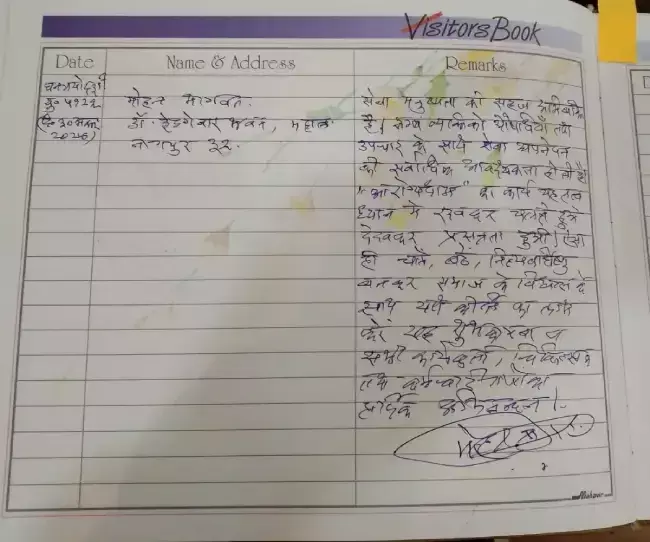 Visitors Book
Date Name & Address Remarks
मोहन भागवत.
डॉ. हेडगेवार भवन, महाल
नागपुर ३२.
सेवा मनुष्यता की सहज अभिव्यक्ति
है। रुग्ण व्यक्तिको औषधियाँ तथा
उपचार के साथ सेवा अपनेपन
की सर्वाधिक आवश्यकता होती है।
"आरोग्यधाम" का कार्य यह तत्व
ध्यान मे रखकर चलते हुवे
देखकर प्रसन्नता हुआ। ऐसा
ही चले, बढे, नित्यवर्धिष्णु
बनकर समाज के विश्वास के
साथ यश कीर्ति का लाभ
करे यह शुभकामना व
सभी कार्यकर्ता, चिकित्सक
तथा कर्मचारी
हार्दिक अभिनन्दन।